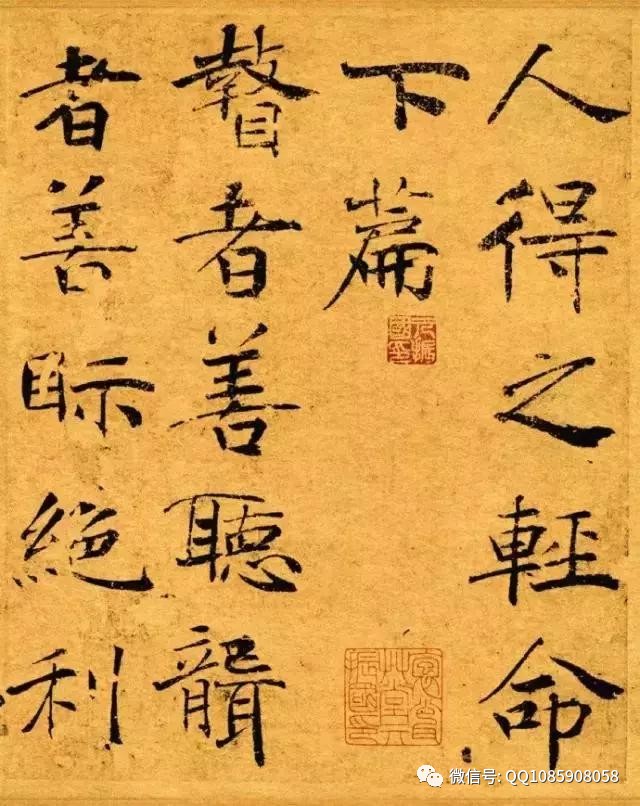 人得之輕命
下篇
瞽者善聽聾
者善眎絕利
微信号: QQ1085908058